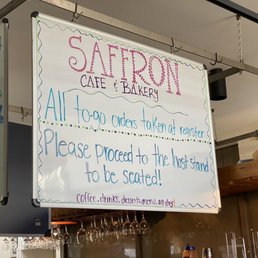 SAFFRON
CAFE & BAKERY
All to-go orders taken at register
Please proceed to the host stand
to be seated!
coffee, drinks, desserts, menu, and